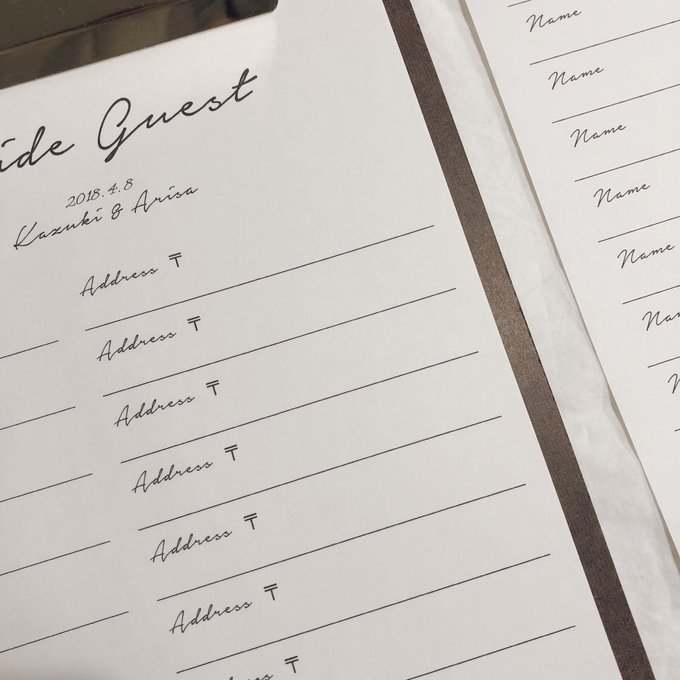 Guest
2018.4.8
Kazuki & Arisa
Address 〒
Address 〒
Address 〒
Address 〒
Address 〒
Address 〒
〒
Name
Name
Name
Name
Name
Name